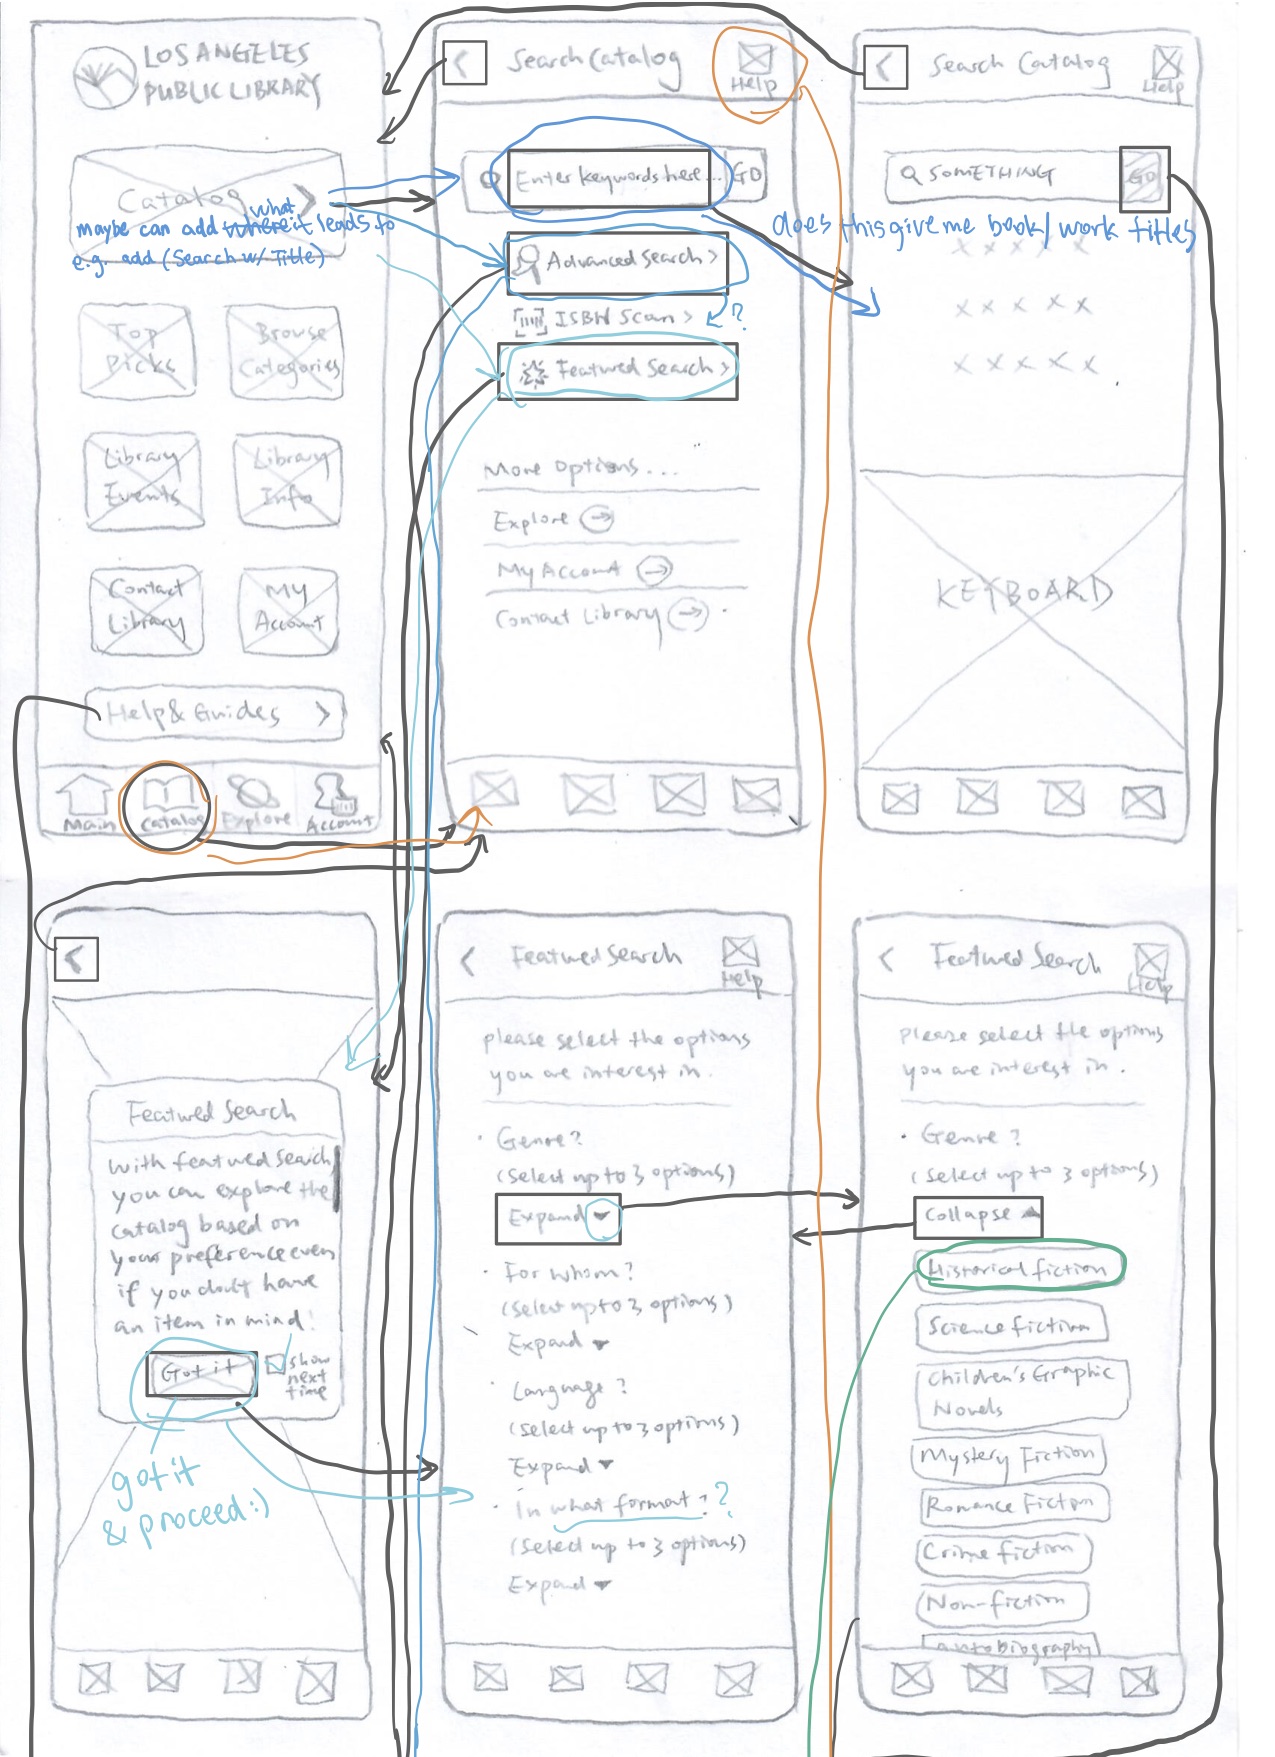 LOS ANGELES
PUBLIC LIBRARY
Catalog >
maybe can add where what it leads to
e.g. add (Search w/ Title)
Top
Picks
Browse
Categories
Library
Events
Library
Info
Contact
Library
My
Account
Help & Guides >
Main
Catalog
Explore
Account
< Search Catalog
Help
Enter keywords here... GO
Advanced Search >
ISBN Scan > ?
Featured Search >
More Options...
Explore →
My Account →
Contact Library →
< Search Catalog
Help
SOMETHING GO
does this give me book/work titles
x x x x x
x x x x x
x x x x x
KEYBOARD
<
Featured Search
with featured search
you can explore the
catalog based on
your preference even
if you don't have
an item in mind!
Got it
show
next
time
got it
& proceed:)
< Featured Search
Help
please select the options
you are interest in.
• Genre?
(Select up to 3 options)
Expand ▼
• For whom?
(Select up to 3 options)
Expand ▼
• Language?
(Select up to 3 options)
Expand ▼
• In what format? ?
(Select up to 3 options)
Expand ▼
< Featured Search
Help
please select the options
you are interest in.
• Genre?
(Select up to 3 options)
Collapse ▲
Historical fiction
Science fiction
Children's Graphic
Novels
Mystery Fiction
Romance Fiction
Crime fiction
Non-fiction
autobiography